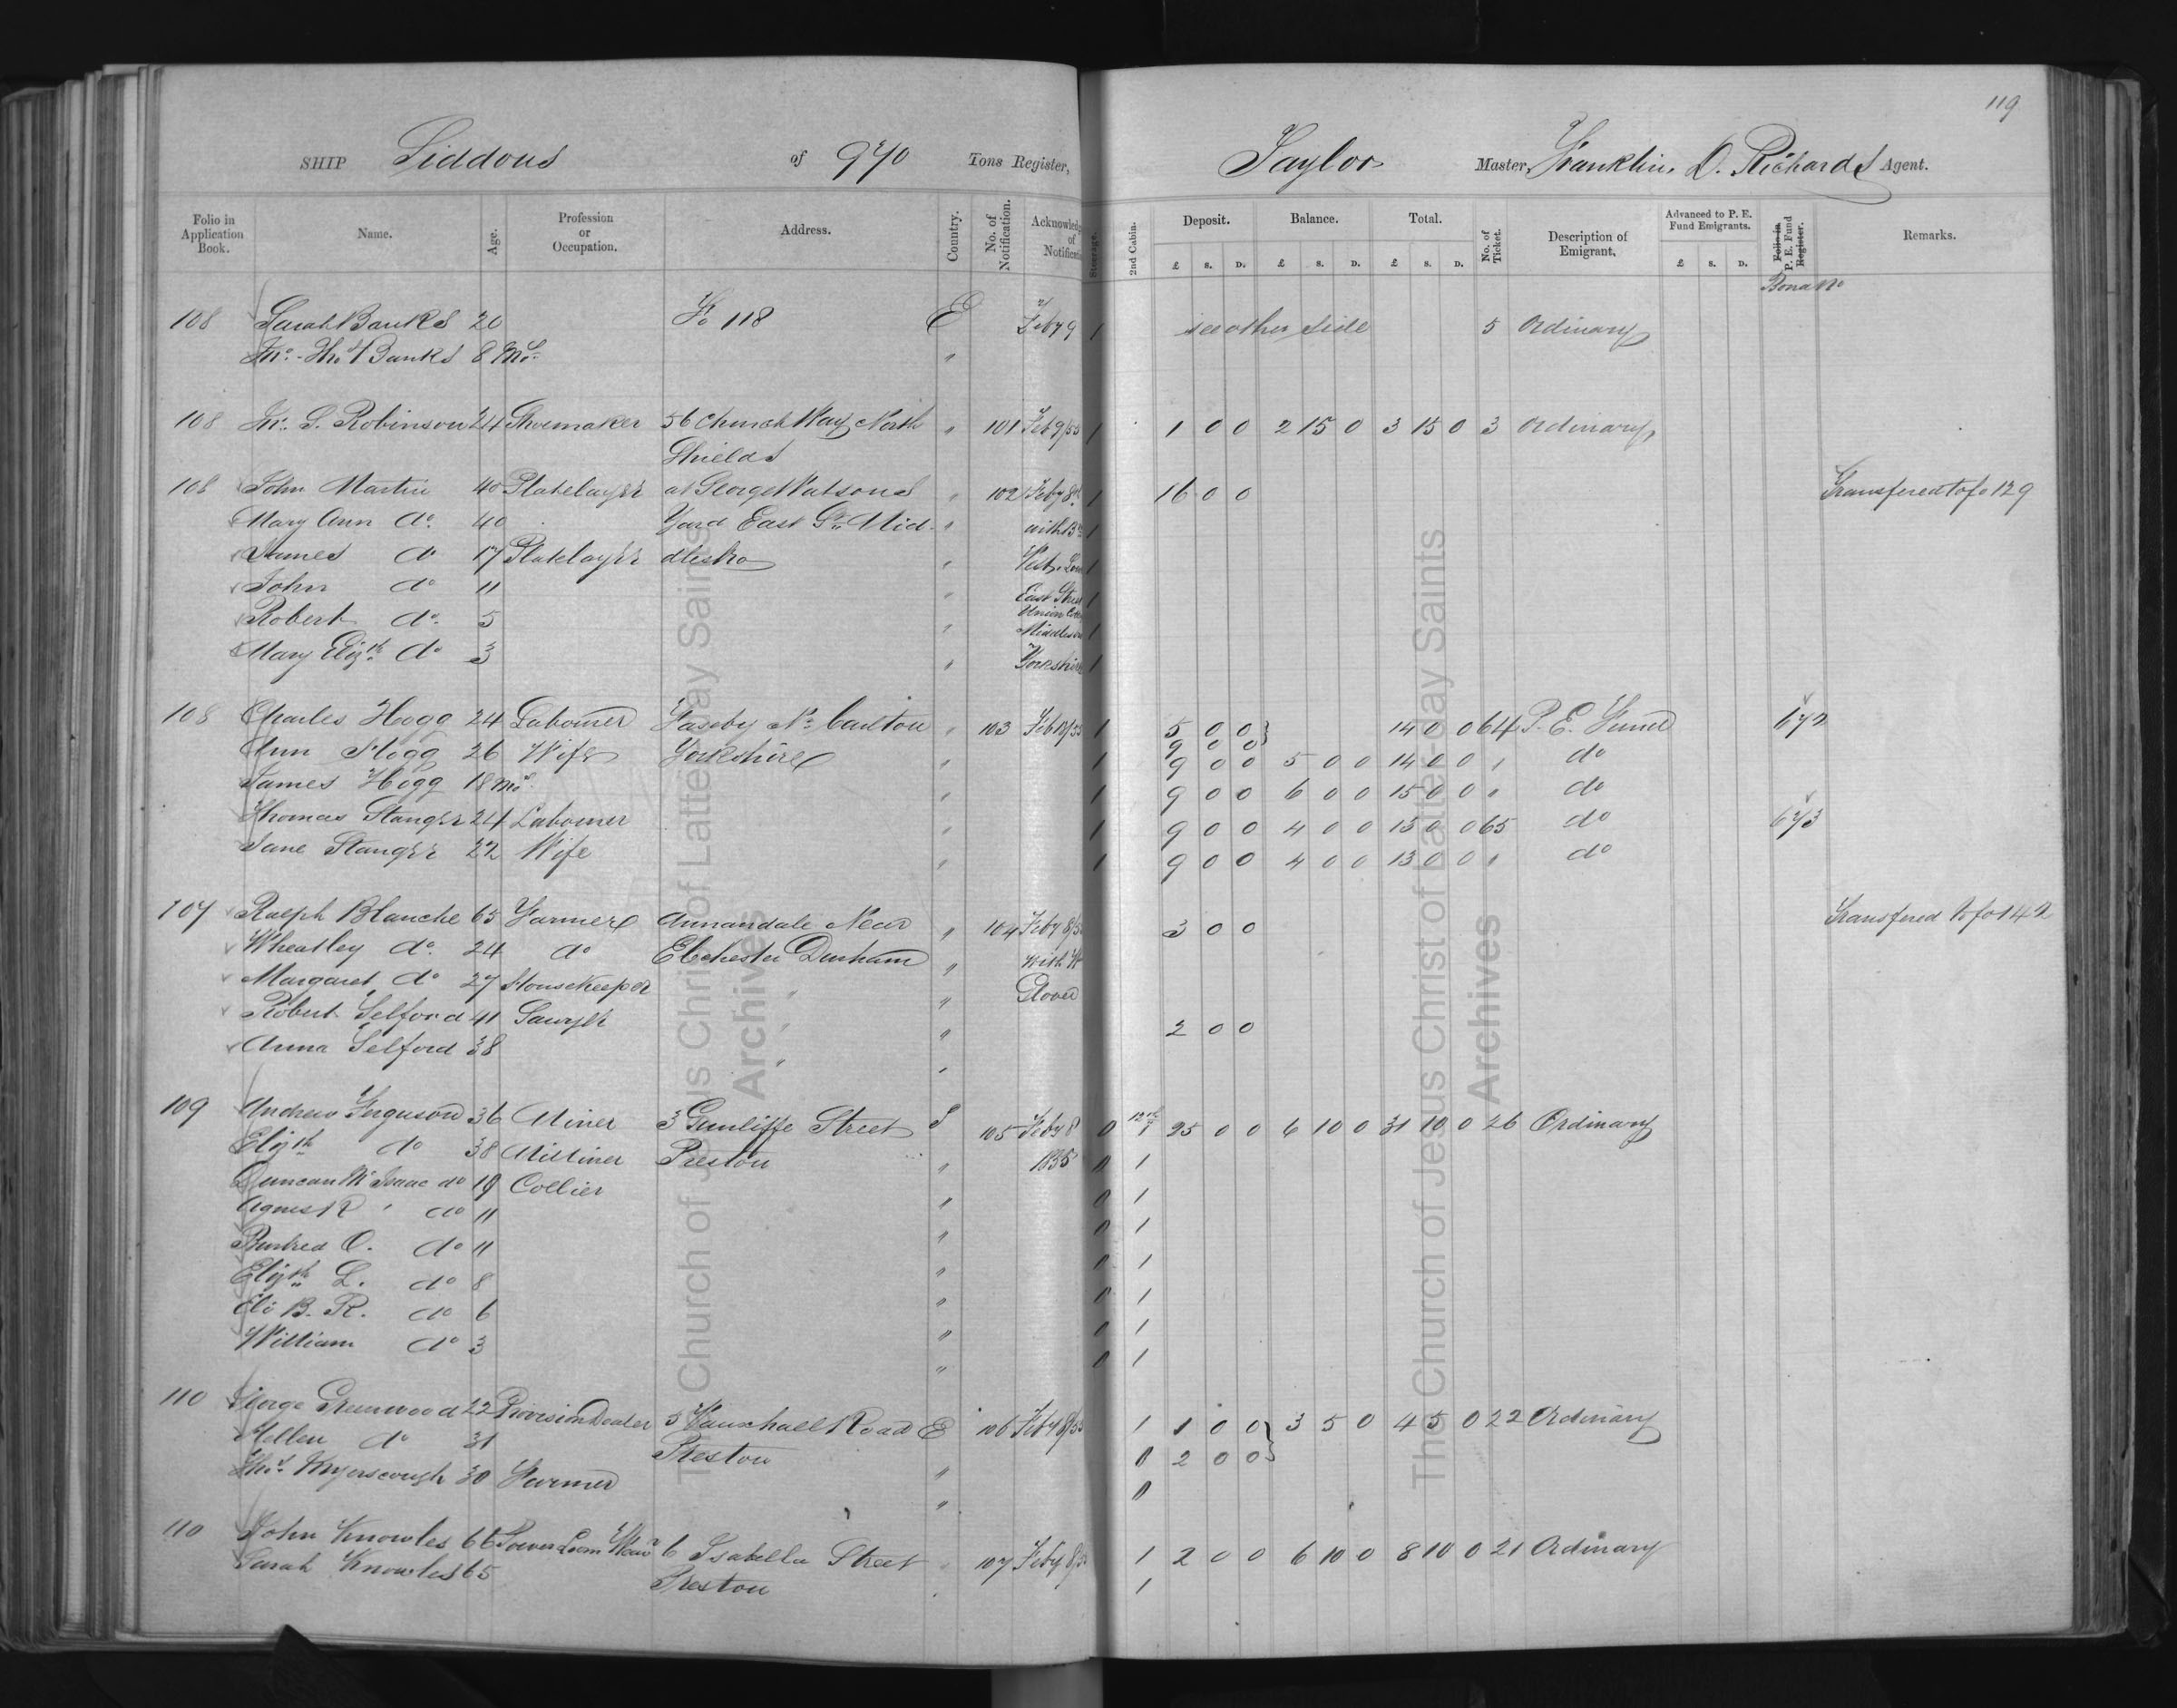 119
SHIP Siddons of 970 Tons Register, Taylor Master, Franklin D. Richards Agent.
Folio in Application Book. Name. Age. Profession or Occupation. Address. Country. No. of Notification. Acknowledg of Notificati Steerage. 2nd Cabin. Deposit. Balance. Total. No. of Ticket. Description of Emigrant. Advanced to P. E. Fund Emigrants. Folio in P. E. Fund Register. Remarks.
£ S. D. £ S. D. £ S. D. £ S. D.
Bond No
108 Sarah Banks 20 Fo 118 E Feby 9 1 see other side 5 Ordinary
Jno. Thos Banks 8 Mos "
108 Jno. S. Robinson 24 Shoemaker 56 Church Way North " 101 Feb 9/55 1 1 0 0 2 15 0 3 15 0 3 Ordinary
Shields
108 John Martin 40 Platelayer at George Watsons " 102 Feby 8th 1 16 0 0 Transfered to fo 129
Mary Ann do 40 Yard East St Mid- " with
James do 17 Platelayer dlesbro " West 1
John do 11 " East Stree 1
Robert do 5 " Union
Middles 1
Mary Elizth do 3 " Yorkshire 1
108 Charles Hogg 24 Labourer Faceby Nr Carlton " 103 Feb 10/55 1 5 0 0 14 0 0 64 P. E. Fund 672
9 0 0
Ann Hogg 26 Wife Yorkshire " 1 9 0 0 5 0 0 14 0 0 " do
James Hogg 18 Mos " 1 9 0 0 6 0 0 15 0 0 " do
Thomas Stanger 24 Labourer " 1 9 0 0 4 0 0 13 0 0 65 do 673
Jane Stanger 22 Wife " 1 9 0 0 4 0 0 13 0 0 " do
107 Ralph Blanche 65 Farmer Annandale Near " 104 Feby 8/5 3 0 0 Transfered to fo 142
Wheatley do 24 do Ebchester Durham " with W
Margaret do 27 Housekeeper " " Glover
Robert Telford 41 Sawyer " " 2 0 0
Anna Telford 38 " "
109 Andrew Ferguson 36 Miner 3 Cunliffe Street S 105 Feby 8 0 1 25 0 0 6 10 0 31 10 0 26 Ordinary
Elizth do 38 Milliner Preston " 1855 0 1
Duncan M Isaac do 19 Collier " 0 1
Agnes R " do 11 " 0 1
do 11 " 0 1
Elizth L. do 8 " 0 1
Eli B. R. do 6 " 0 1
William do 3 " 0 1
110 George Greenwood 22 Provision Dealer 5 Vauxhall Road E 106 Feby 8/55 1 1 0 0 3 5 0 4 5 0 22 Ordinary
Hellen do 31 Preston " 0 2 0 0
Thos Myerscough 30 Farmer " 0
110 John Knowles 66 Power Loom Weavr 6 Isabella Street 107 Feby 8/5 1 2 0 0 6 10 0 8 10 0 21 Ordinary
Sarah Knowles 65 Preston 1
The Church of Jesus Christ of Latter-day Saints
Archives
The Church of Jesus Christ of Latter-day Saints
Archives